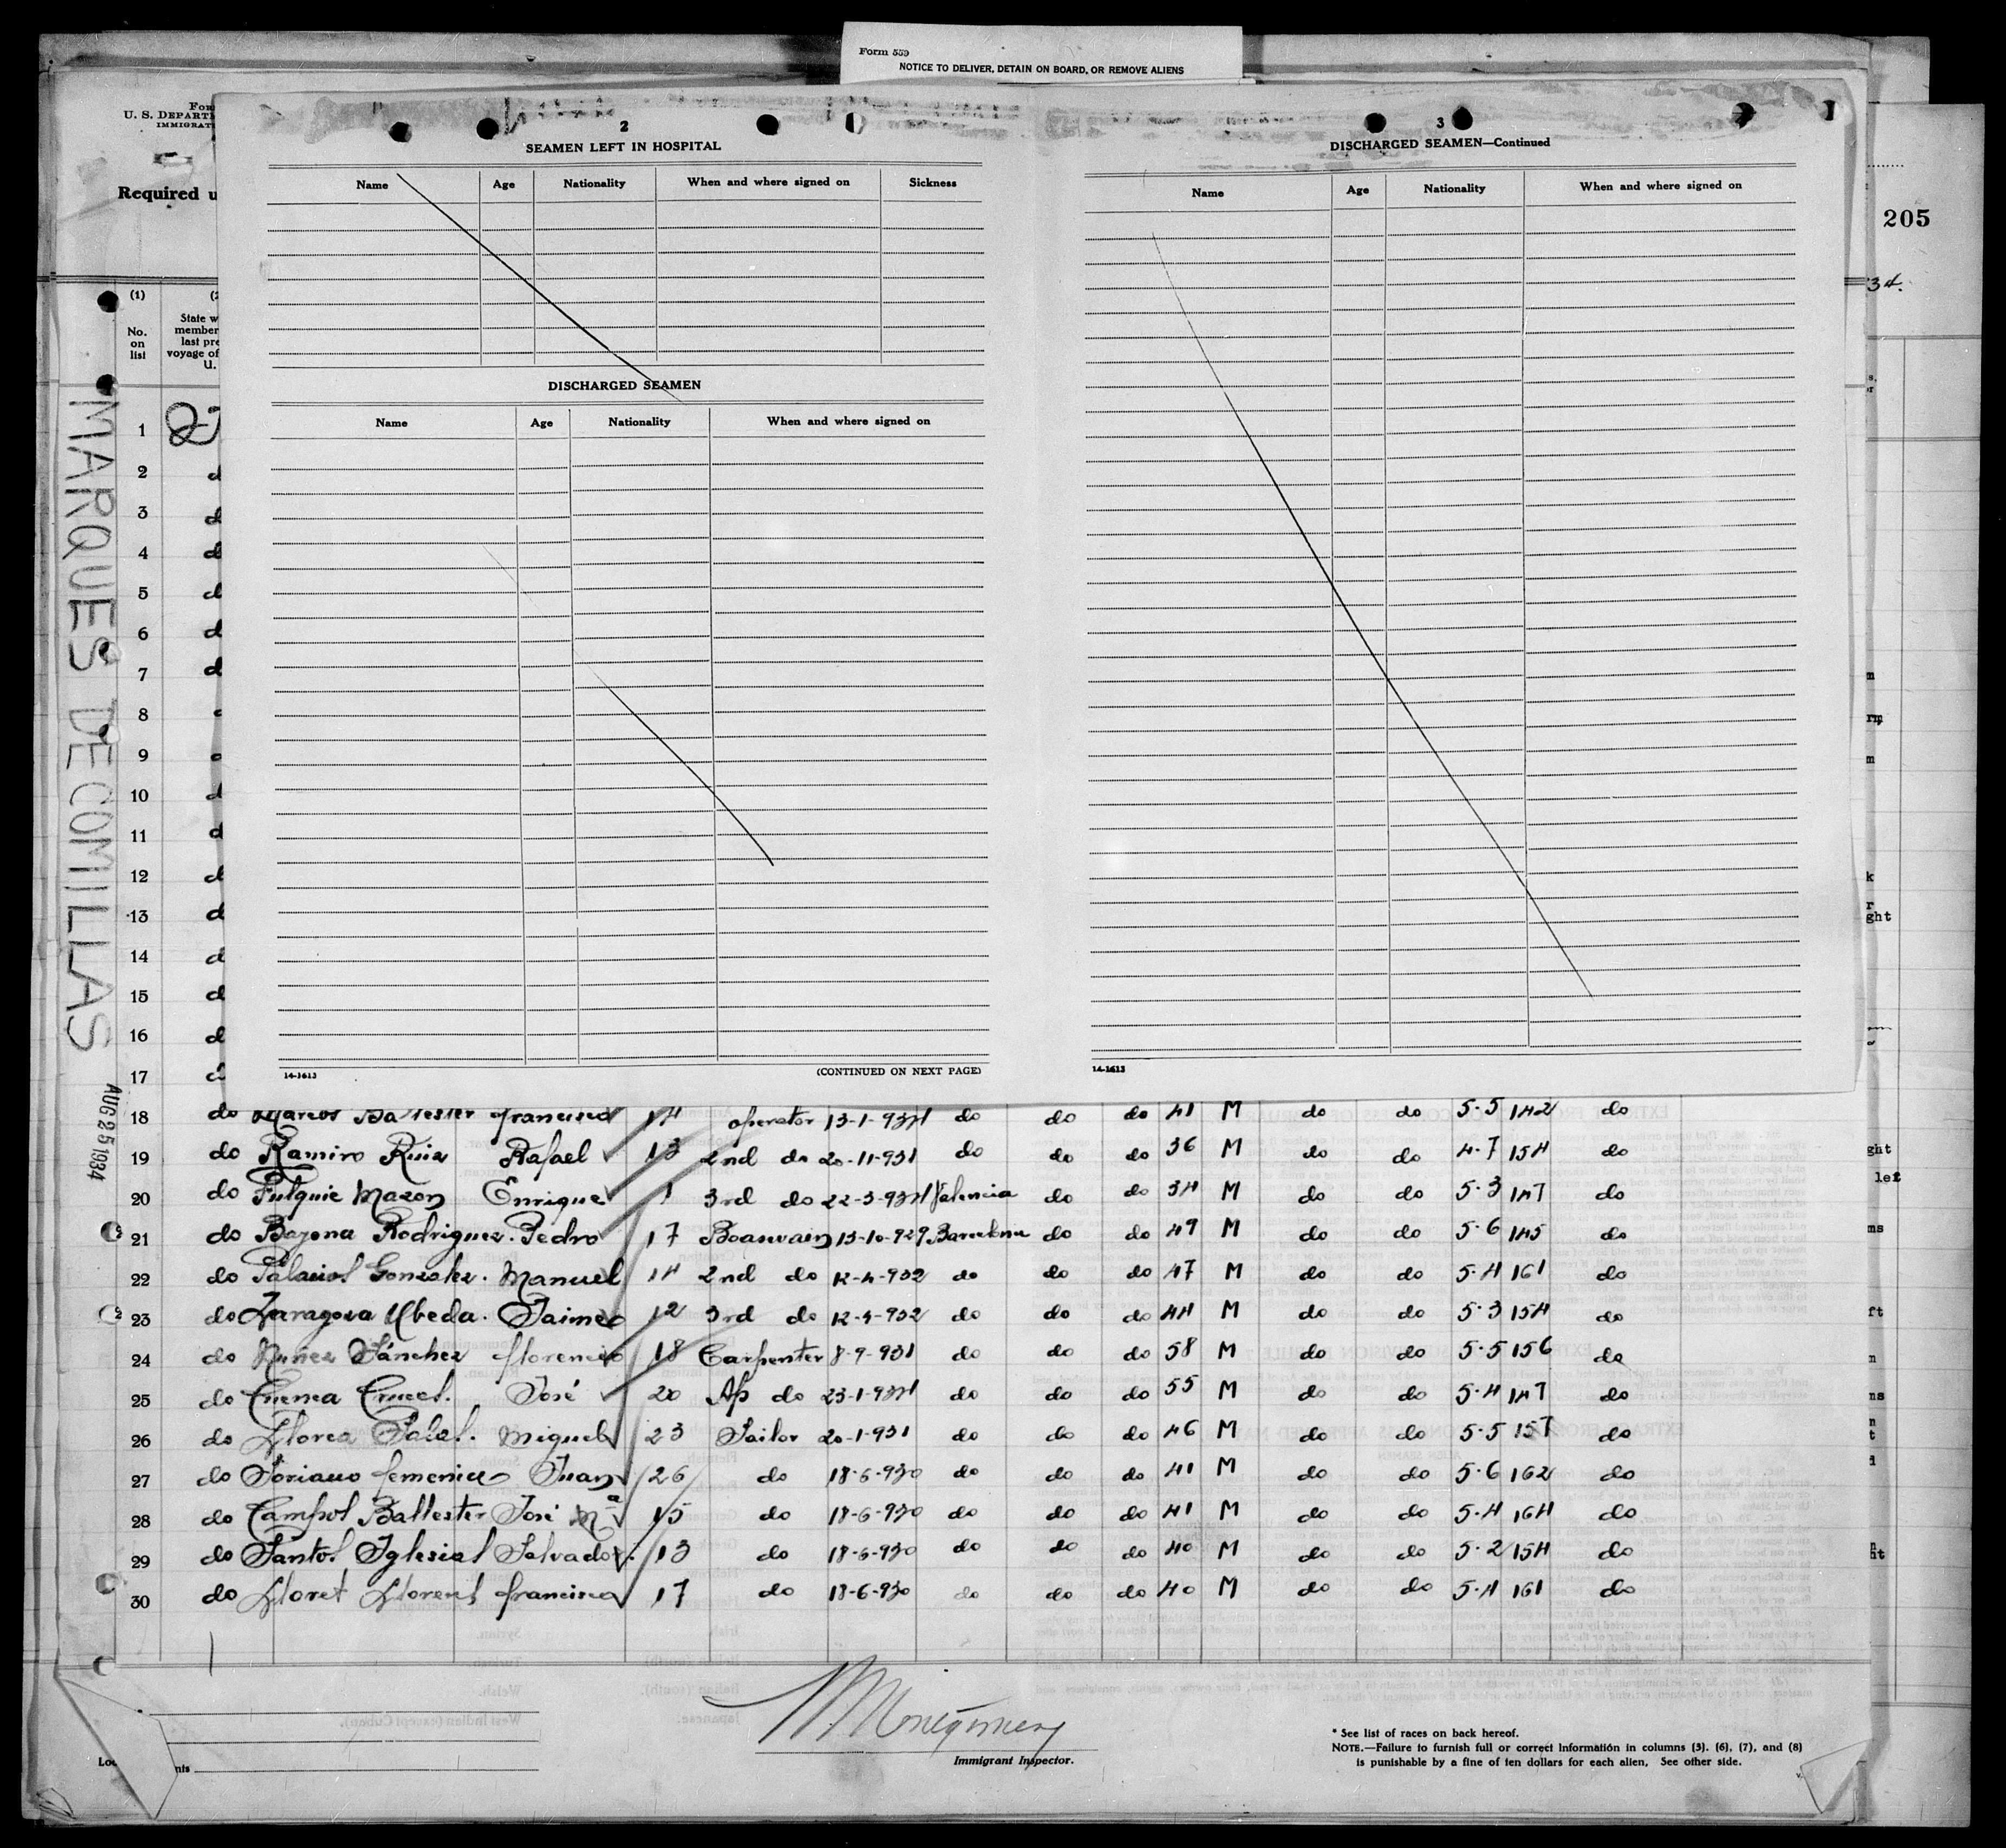 Form 559
NOTICE TO DELIVER, DETAIN ON BOARD, OR REMOVE ALIENS
U. S. DEPART
IMMIGRAT
Required u
205
34.
MARQUES DE COMILLAS
AUG 25 1934
(1)
No.
on
list
State w
member
last pre
voyage of
U.
2
SEAMEN LEFT IN HOSPITAL
Name Age Nationality When and where signed on Sickness
DISCHARGED SEAMEN
Name Age Nationality When and where signed on
14-1613 (CONTINUED ON NEXT PAGE)
3
DISCHARGED SEAMEN—Continued
Name Age Nationality When and where signed on
14-1613
1
2
3
4
5
6
7
8
9
10
11
12
13
14
15
16
17
18 do Marcos Ballester francisco 14 operator 13-1-934 do do do 41 M do do 5-5 142 do
19 do Ramiro Ruiz Rafael 13 2nd do 20-11-931 do do do 36 M do do 4-7 154 do
20 do Fulquie Mazon Enrique 1 3rd do 22-3-934 Valencia do do 34 M do do 5-3 147 do
21 do Bazona Rodriguez. Pedro 17 Boaswain 13-10-929 Barcelona do do 49 M do do 5-6 145 do
22 do Palacios Gonzalez. Manuel 14 2nd do 12-4-932 do do do 47 M do do 5-4 161 do
23 do Zaragoza Ubeda. Jaime 12 3rd do 12-4-932 do do do 44 M do do 5-3 154 do
24 do Nuñez Sánchez florencio 18 Carpenter 8-9-931 do do do 58 M do do 5-5 156 do
25 do José 20 Ap do 23-1-934 do do do 55 M do do 5-4 147 do
26 do Llorca Miguel 23 Sailor 20-1-931 do do do 46 M do do 5-5 157 do
27 do Soriano femenia Juan 26 do 18-6-930 do do do 41 M do do 5-6 162 do
28 do Campos Ballester José Mª 15 do 18-6-930 do do do 41 M do do 5-4 164 do
29 do Santos Iglesias Salvador. 13 do 18-6-930 do do do 40 M do do 5-2 154 do
30 do Lloret Llorens francisco 17 do 18-6-930 do do do 40 M do do 5-4 161 do
Montgomery
Immigrant Inspector.
* See list of races on back hereof.
NOTE.—Failure to furnish full or correct information in columns (3), (6), (7), and (8)
is punishable by a fine of ten dollars for each alien. See other side.